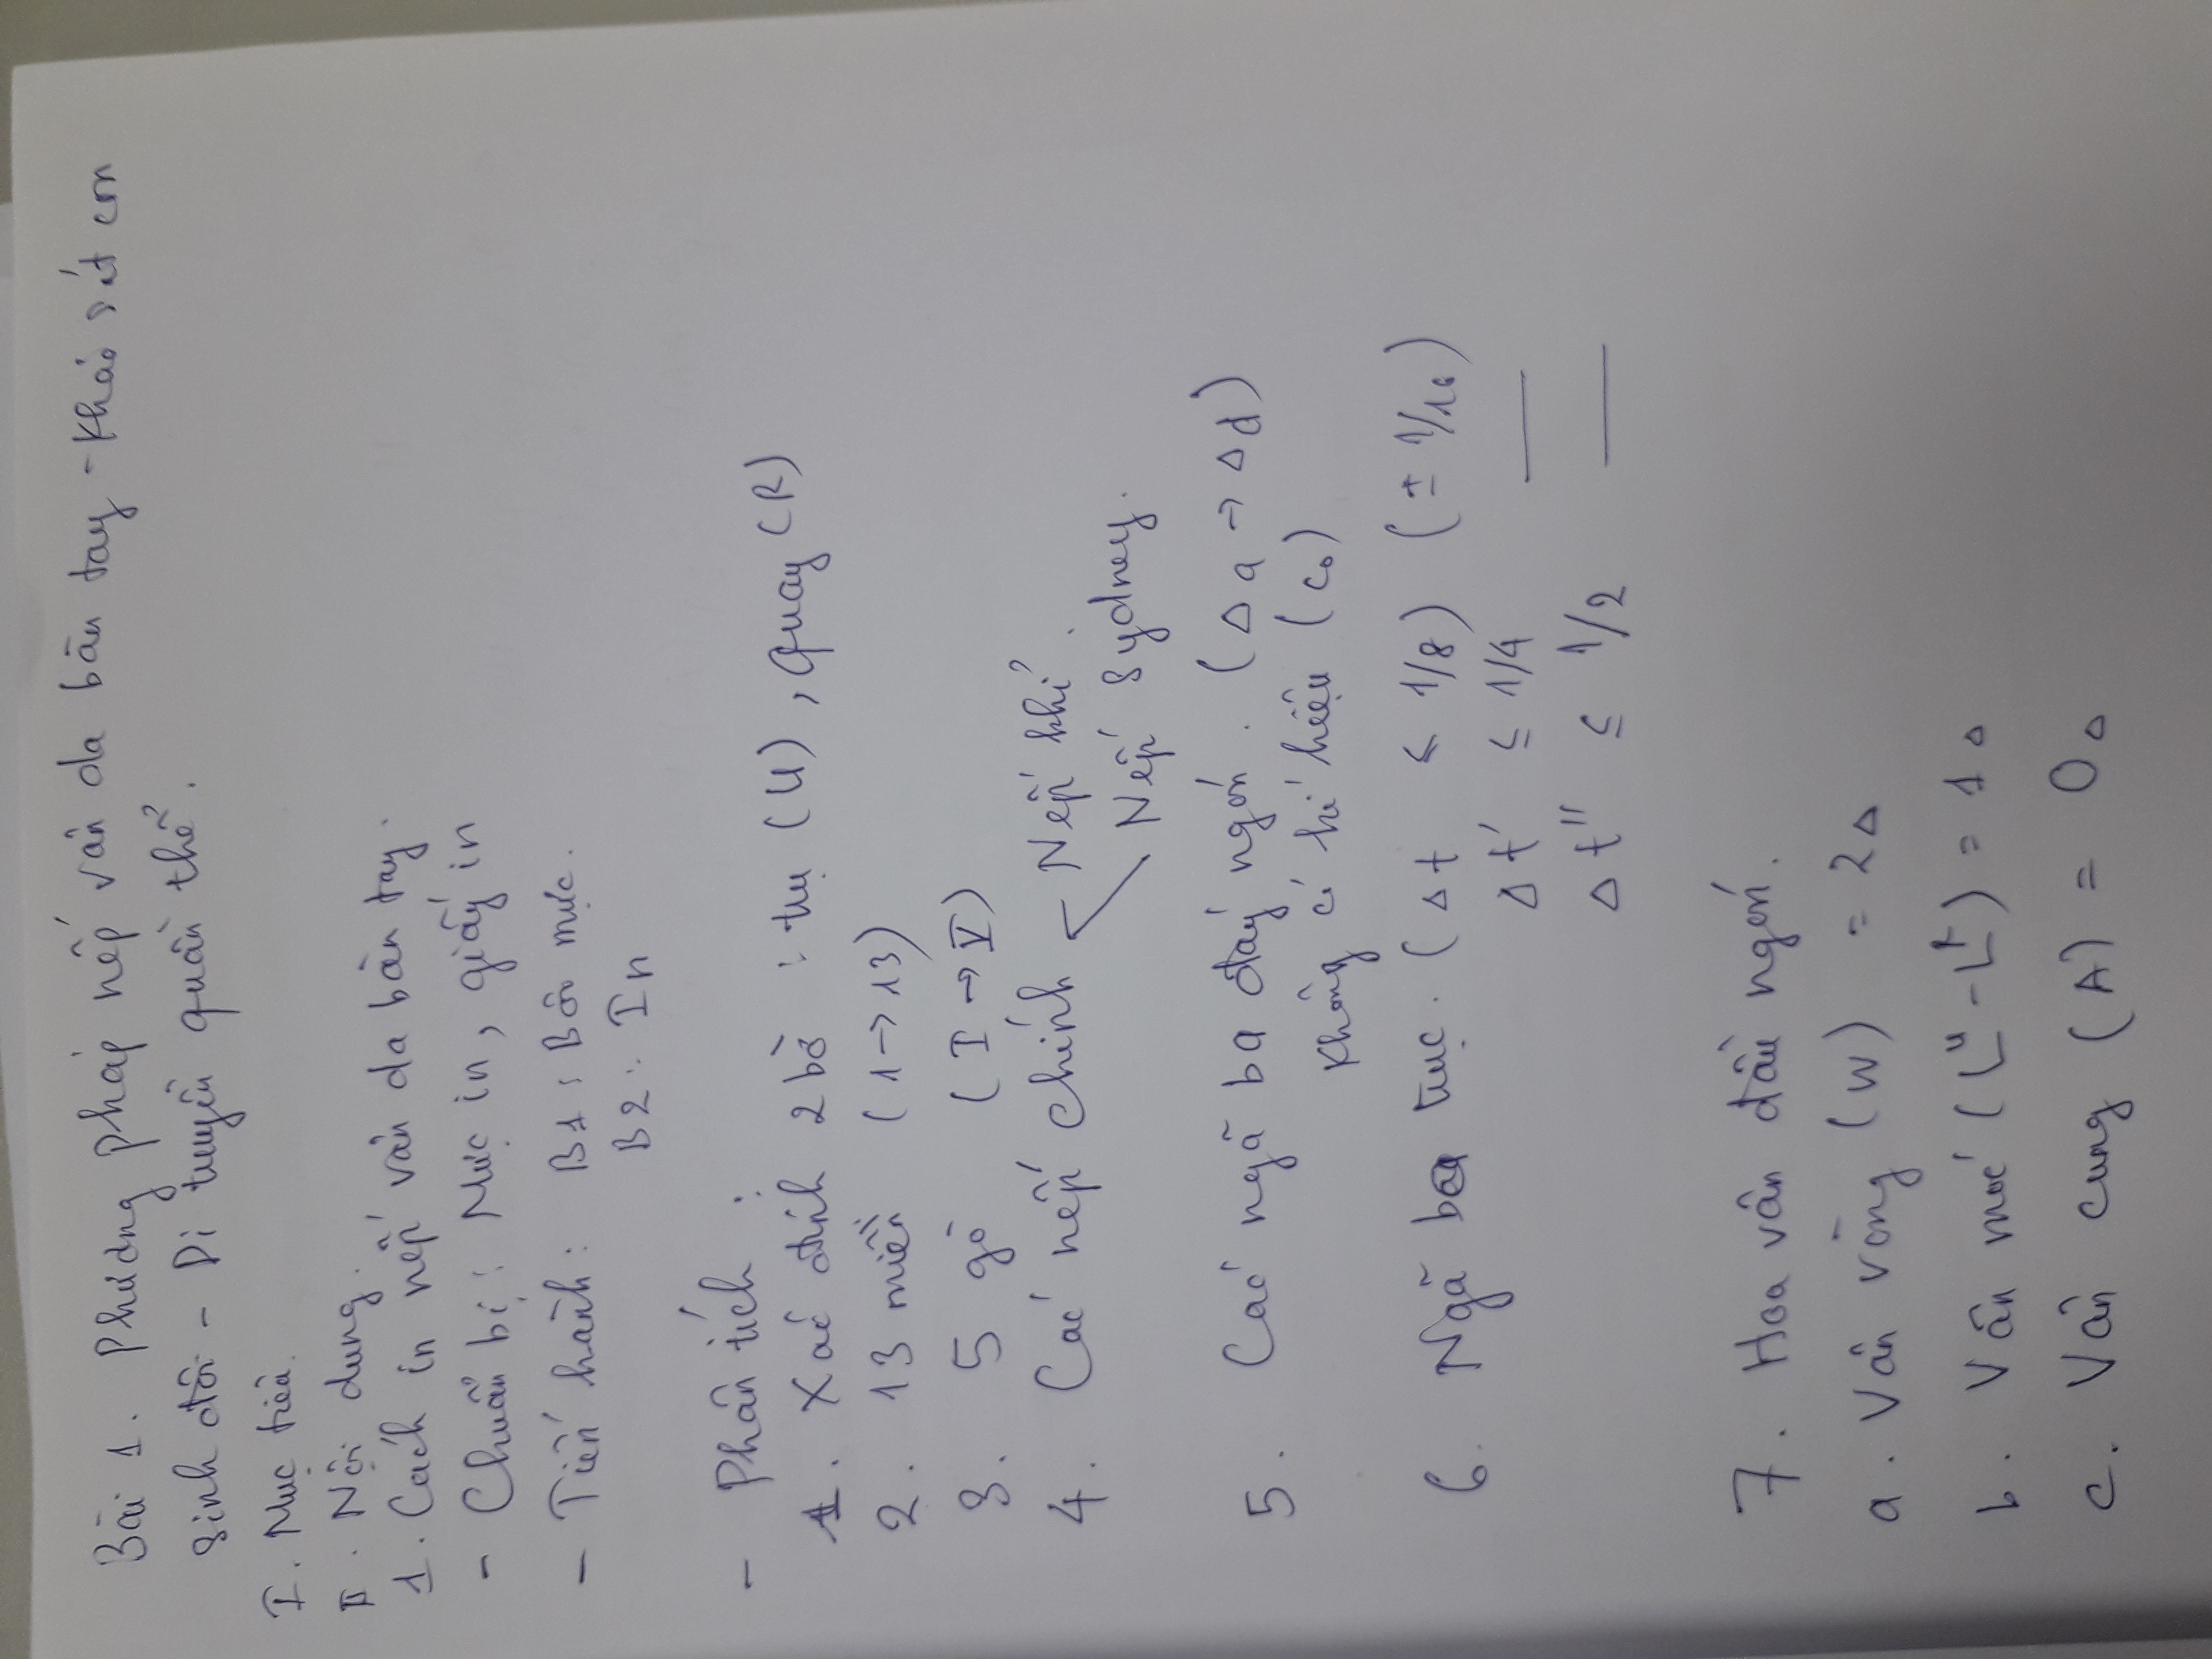 Bài 1. Phương pháp nếp vân da bàn tay - Khảo sát con
sinh đôi - Di truyền quần thể.
I. Mục tiêu.
II. Nội dung.
1. Cách in nếp vân da bàn tay.
- Chuẩn bị: Mực in, giấy in
- Tiến hành: B1: Bôi mực.
B2: In
- Phân tích:
1. Xác định 2 bờ: trụ (U), quay (R)
2. 13 miền (1→13)
3. 5 gò (I→V)
4. Các nếp chính Nếp khỉ.
Nếp Sydney.
5. Các ngã ba đáy ngón. (Δa → Δd)
Không có kí hiệu (c₀)
6. Ngã ba trục. (Δt ≤ 1/8) (± 1/10)
Δt' ≤ 1/4 —
Δt" ≤ 1/2 —
7. Hoa vân đầu ngón.
a. Vân vòng (W) = 2Δ
b. Vân móc (Lᵘ - Lᴿ) = 1Δ
c. Vân cung (A) = 0Δ